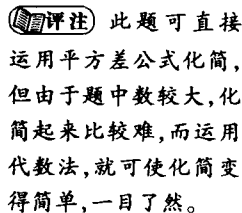 评注 此题可直接
运用平方差公式化简,
但由于题中数较大,化
简起来比较难,而运用
代数法,就可使化简变
得简单,一目了然。